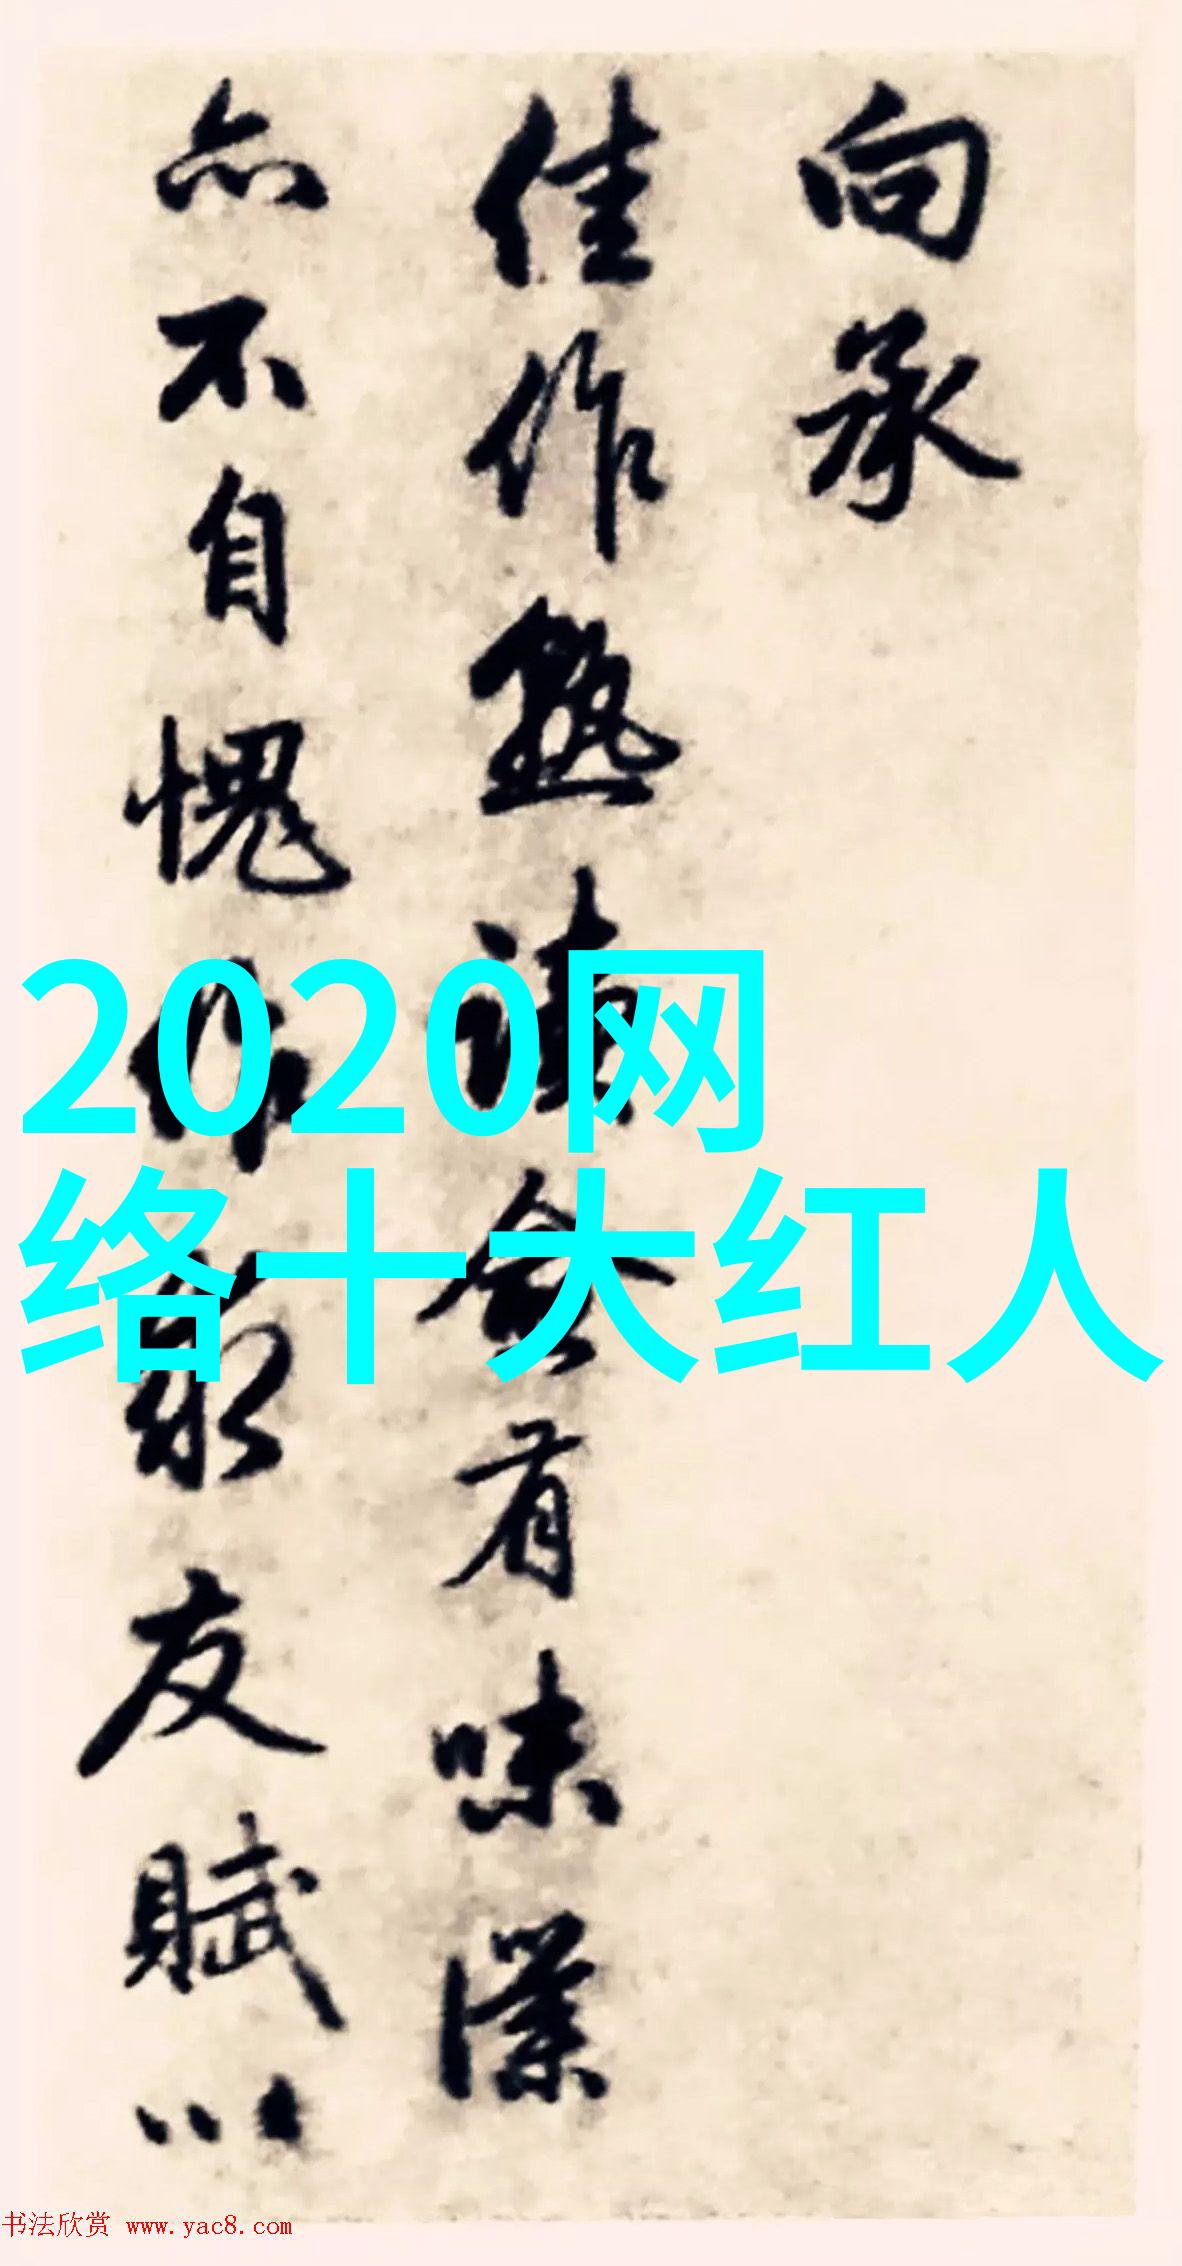 向承
佳作熟讀愈有味僕
亦不自愧作友賦以
2020网
络十大红人
书法欣赏 www.yac8.com